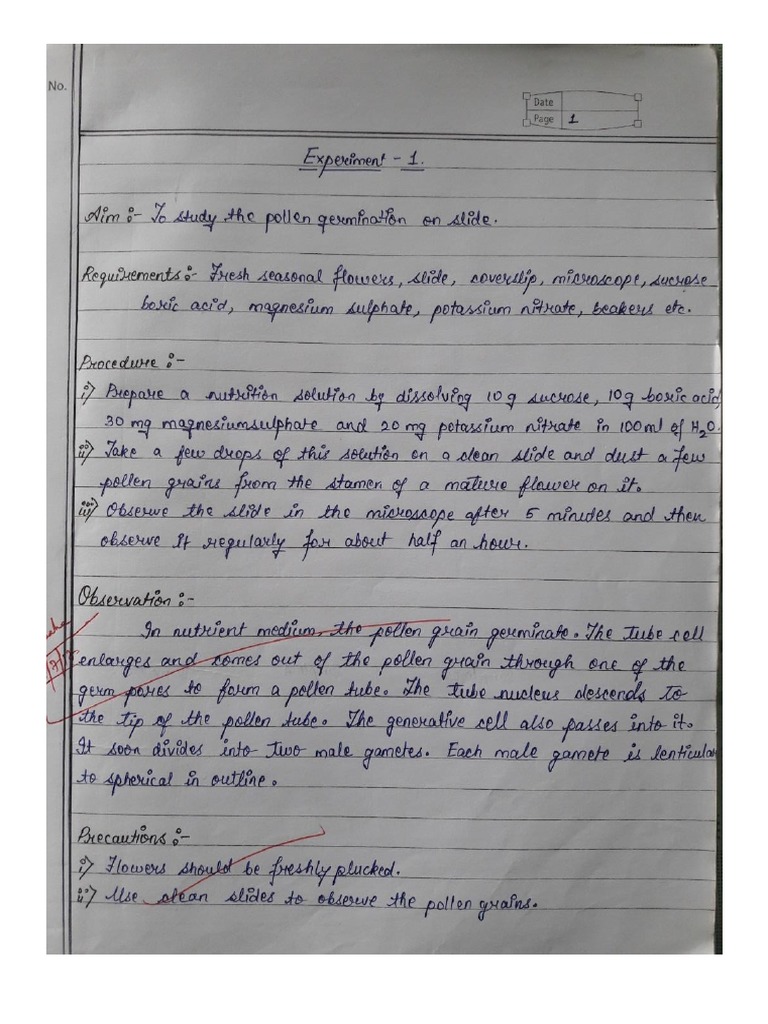 No.
Date
Page 1
Experiment - 1.
Aim :- To study the pollen germination on slide.
Requirements :- Fresh seasonal flowers, slide, coverslip, microscope, sucrose
boric acid, magnesium sulphate, potassium nitrate, beakers etc.
Procedure :-
i) Prepare a nutrition solution by dissolving 10 g sucrose, 10g boric acid,
30 mg magnesiumsulphate and 20 mg potassium nitrate in 100 ml of H2O.
ii) Take a few drops of this solution on a clean slide and dust a few
pollen grains from the stamen of a mature flower on it.
iii) Observe the slide in the microscope after 5 minutes and then
observe it regularly for about half an hour.
Observation :-
In nutrient medium, the pollen grain germinate. The tube cell
enlarges and comes out of the pollen grain through one of the
germ pores to form a pollen tube. The tube nucleus descends to
the tip of the pollen tube. The generative cell also passes into it.
It soon divides into two male gametes. Each male gamete is lenticular
to spherical in outline.
Precautions :-
i) Flowers should be freshly plucked.
ii) Use clean slides to observe the pollen grains.